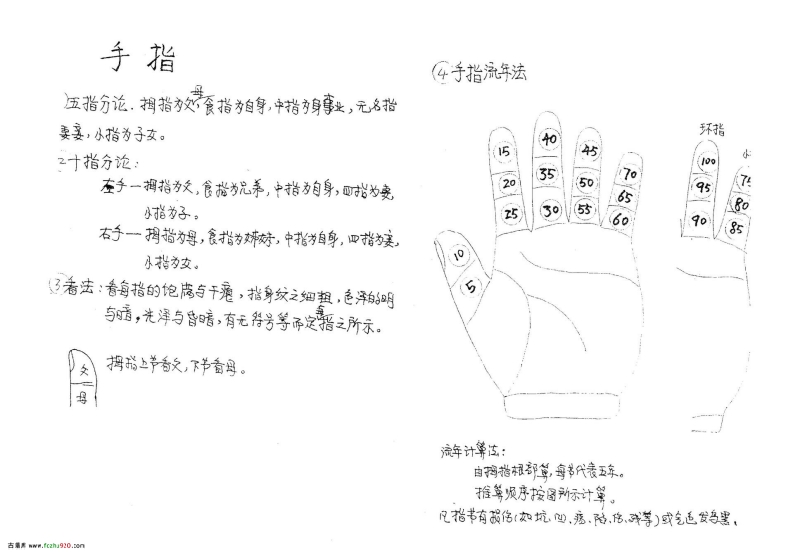 手指
1五指分论．拇指为父母，食指为自身，中指为身事业，无名指
妻妾，小指为子女。
2十指分论：
左手一拇指为父，食指为兄弟，中指为自身，四指为妻
小指为子。
右手一拇指为母，食指为姊妹，中指为自身，四指为妻，
小指为女。
③看法：看每指的饱满与干瘪，指身纹之细粗，色泽的明
与暗，光泽与昏暗，有无符号等而定每指之所示。
父
母
拇指上节看父，下节看母。
④手指流年法
15
20
25
40
35
30
45
50
55
70
65
60
10
5
环指
100
95
90
小
75
80
85
流年计算法：
由拇指根部算，每节代表五年。
推算顺序按图所示计算。
凡指节有损伤(如坑、凹、疤、陷、伤、残等)或气色发乌黑、
古易库 www.fczhu920.com